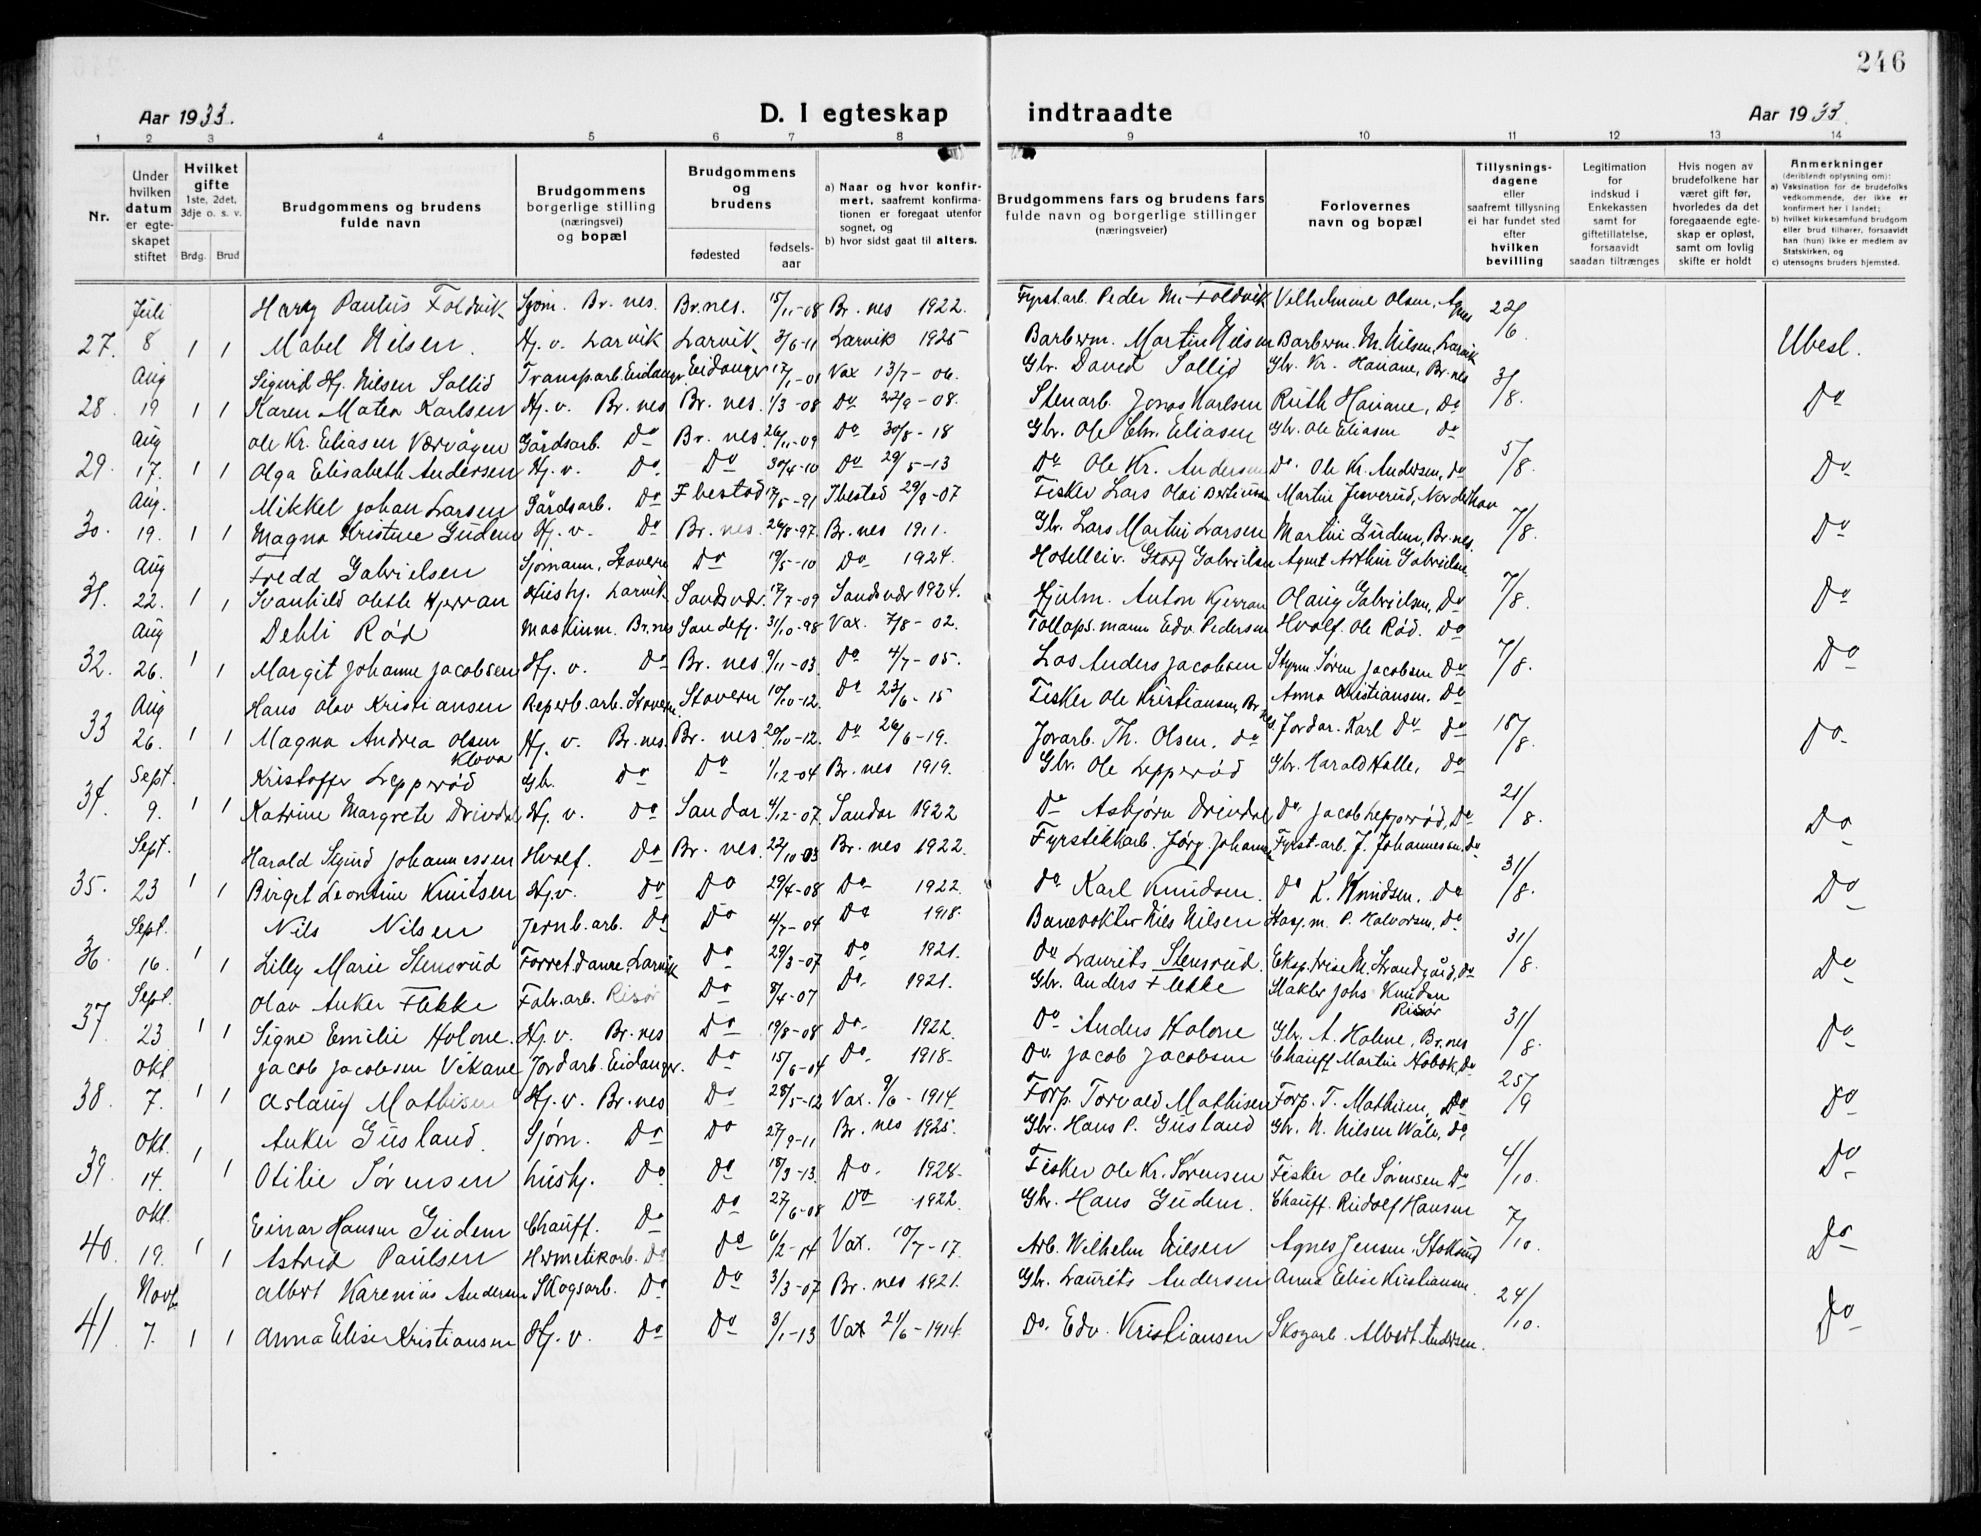 246
Aar 1933.
D. I egteskap indtraadte
Aar 1933.
1 2 3 4 5 6 7 8 9 10 11 12 13 14
Nr.
Under hvilken datum er egteskapet stiftet
Hvilket gifte 1ste, 2det, 3dje o. s. v.
Brdg. Brud
Brudgommens og brudens fulde navn
Brudgommens borgerlige stilling (næringsvei) og bopæl
Brudgommens og brudens
fødested fødselsaar
a) Naar og hvor konfirmert, saafremt konfirmationen er foregaat utenfor sognet, og
b) hvor sidst gaat til alters.
Brudgommens fars og brudens fars fulde navn og borgerlige stillinger (næringsveier)
Forlovernes navn og bopæl
Tillysningsdagene eller saafremt tillysning ei har fundet sted efter hvilken bevilling
Legitimation for indskud i Enkekassen samt for giftetillatelse, forsaavidt saadan tiltrænges
Hvis nogen av brudefolkene har været gift før, hvorledes da det foregaaende egteskap er opløst, samt om lovlig skifte er holdt
Anmerkninger (deriblandt oplysning om):
a) Vaksination for de brudefolks vedkommende, der ikke er konfirmert her i landet;
b) hvilket kirkesamfund brudgom eller brud tilhører, forsaavidt han (hun) ikke er medlem av Statskirken, og
c) utensogns bruders hjemsted.
Juli Harry Paulus Foldvik Sjøm. Br.nes. Br.nes. 15/11-08 Br.nes 1922. Fyrst.arb. Peder M. Foldvik Vilhelmine Olsen, Agnes 22/6
27. 8 1 1 Mabel Nilsen. Hj. v. Larvik Larvik 3/6-11 Larvik 1925 Barberm. Martin Nilsen Barberm. M. Nilsen, Larvik Ubesl.
Aug Sigurd Hj. Nilsen Sollid Transp.arb. Eidanger Eidanger 17/1-01 Vax 13/7-06. Gbr. David Sollid Gbr. Kr. Haviane, Br.nes 3/8.
28. 19 1 1 Karen Matea Karlsen Hj. v. Br. nes Br. nes. 1/3-08 Do 22/9-08. Stenarb. Jonas Karlsen Ruth Haviane, Do Do
Aug Ole Kr. Eliasen Værvågen Gårdsarb. Do Br. nes. 26/11-09 Do 30/8-18 Gbr. Ole Chr. Eliasen Gbr. Ole Eliasen do 5/8.
29. 17. 1 1 Olga Elisabeth Andersen Hj. v. Do. Do 30/4-10 Do 29/5-13 Do Ole Kr. Andersen Do. Ole Kr. Andersen, do Do
Aug. Mikkel Johan Larsen Gårdsarb. Do Ibestad 17/5-91 Ibestad 29/9-07 Fisker Lars Olai Bertinsen Martin Juverud, Norderhov 7/8.
30. 19. 1 1 Magna Kristine Gudem Hj. v. Do Br. nes. 26/8-97. Br. nes 1911. Gbr. Lars Martin Larsen Martin Gudem, Br.nes. Do
Aug Fredd Gabrielsen Sjømann, Stavern Do 19/5-10 Do 1924. Hotelleier Georg Gabrielsen Agent Arthur Gabrielsen 7/8.
31. 22. 1 1 Svanhild Olette Kjerran Hushj. Larvik Sandsvær. 17/7-09 Sandsvær 1924. Hjulm. Anton Kjerran Olaug Gabrielsen, Do Do
Aug Dehli Rød Maskinm. Br.nes Sandefj. 31/10-98 Vax. 7/8-02. Tollops.mann Edv. Pedersen Hvalf. Ole Rød. Do 7/8.
32. 26. 1 1 Margit Johanne Jacobsen Hj. v. Do Br. nes 9/11-03. Do 4/7-05. Los Anders Jacobsen Styrm. Søren Jacobsen Do Do
Aug Hans Olav Kristiansen Reperb.arb. Stavern. Stavern 10/10-12. Do 23/6-15 Fisker Ole Kristiansen, Br.nes Anna Kristiansen. Do 18/8.
33 26. 1 1 Magna Andrea Olsen Klova Hj. v. Br.nes. Br. nes 20/10-12. Do 26/6-19. Jovarb. Th. Olsen, do Jordar. Karl Do do Do
Sept. Kristoffer Lepperød Gbr. Do Do 1/12-04 Br. nes 1919. Gbr. Ole Lepperød Gbr. Harald Halle, Do 21/8.
34. 9. 1 1 Katrine Margrete Drivdal Hj. v. Do Sandar 4/12-07. Sandar 1922 Do Asbjørn Drivdal Do. Jacob Lepperød, Do Do
Sept. Harald Sigurd Johannessen Hvalf. Do Br. nes. 22/10-03 Br. nes 1922. Fyrstikkarb. Jørg. Johannes. Fyrst-arb. J. Johannesen. Do 31/8.
35. 23 1 1 Birgit Leontine Knutsen Hj.v. Do Do 29/4-08 Do 1922. Do Karl Knudsen. Do K. Knudsen. Do Do
Sept. Nils Nilsen Jernb.arb. Do Do 4/7-04 Do 1918. Banevokter Nils Nilsen P. Halvorsen, Do 31/8.
36 16. 1 1 Lilly Marie Stensrud Forret.dame, Larvik Do 29/3-07 Do 1921. Do Laurits Stensrud. Eksp.trise M. Strandgård, Do Do
Sept. Olav Anker Flekke Fabr.arb. Risør Do 8/4-07 Do. 1921. Gbr. Anders Flekke Makler Johs Knudsen Risør 31/8.
37 23 1 1 Signe Emilie Holone. Hj. v. Br. nes Do 19/8-08 Do. 1922. Do Anders Holone Gbr. A. Holene, Br.nes Do
Okt. Jacob Jacobsen Vikane Jordarb. Eidanger. Do 15/6-04 Do. 1918. Do. Jacob Jacobsen Chauff Martin Nobok, Do 25/9
38. 7. 1 1 Aslaug Mathisen Hj. v. Br. nes Do 28/5-12 Vax. 9/6-1914. Forp. Torvald Mathisen Forp. T. Mathisen, Do Do
Okt. Anker Gusland. Sjøm. Do Do 27/9-11 Br. nes 1925. Gbr. Hans P. Gusland Gbr. N. Nilsen Wåle, do. 4/10.
39. 14. 1 1 Otilie Sørensen Hushj. Do Do 18/3-13. Do. 1928. Fisker Ole Kr. Sørensen Fisker Ole Sørensen Do Do
Okt. Einar Hansen Gudem Chauff. Do Do 27/6-08 Do 1922. Gbr. Hans Gudem. Chauff. Rudolf Hansen 7/10.
40. 19. 1 1 Astrid Paulsen Hermetikarb. Do Do 6/2-14 Vax. 10/7-17. Arb. Wilhelm Nilsen Agnes Jensen, Stoksund Do
Novbr Albert Karenius Andersen Skogsarb. Do Do 3/3-07 Br. nes 1921. Gbr. Laurits Andersen Anna Elise Kristiansen. 24/10.
41 7. 1 1 Anna Elise Kristiansen Hj. v. Do Do 3/1-13 Vax 21/6-1914. Do. Edv. Kristiansen Skogarb. Albert Andersen. Do